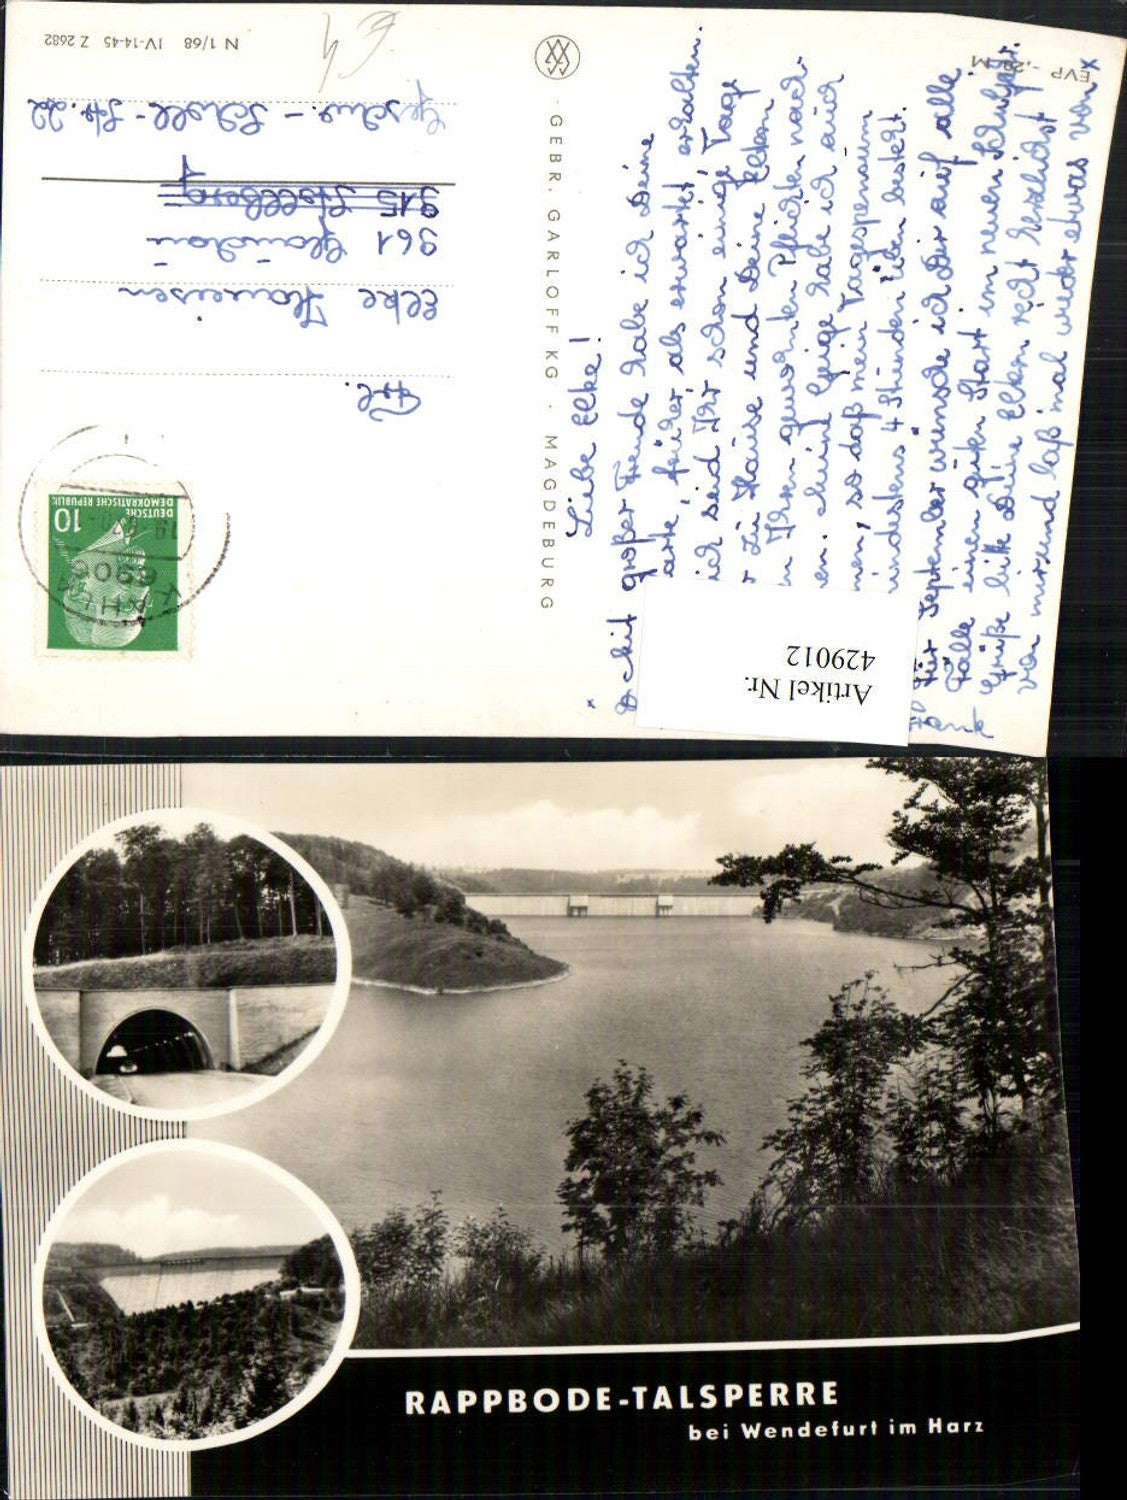 Liebe Elke!
Mit großer Freude habe ich Deine
Karte, früher als erwartet, erhalten.
ich seid Ihr schon einige Tage
zu Hause und Deine Eltern
Ihren gewohnten Pflichten nach-
en. meine Geige habe ich auch
men, so daß mein Tagespensum
mindestens 4 Stunden üben besteht.
Für September wünsche ich Dir auf alle
Fälle einen guten Start im neuen Schuljahr.
Grüße bitte Deine Eltern recht herzlichst
von mir und laß mal wieder etwas von
Artikel Nr.
429012
GEBR. GARLOFF KG · MAGDEBURG
EVP -,20 M
Frl.
Elke
961 Glauchau
915 Stollberg
Geschw.-Scholl-Str. 22
N 1/68 IV-14-45 Z 2682
DEUTSCHE
DEMOKRATISCHE REPUBLIK
10
6906
RAPPBODE-TALSPERRE
bei Wendefurt im Harz